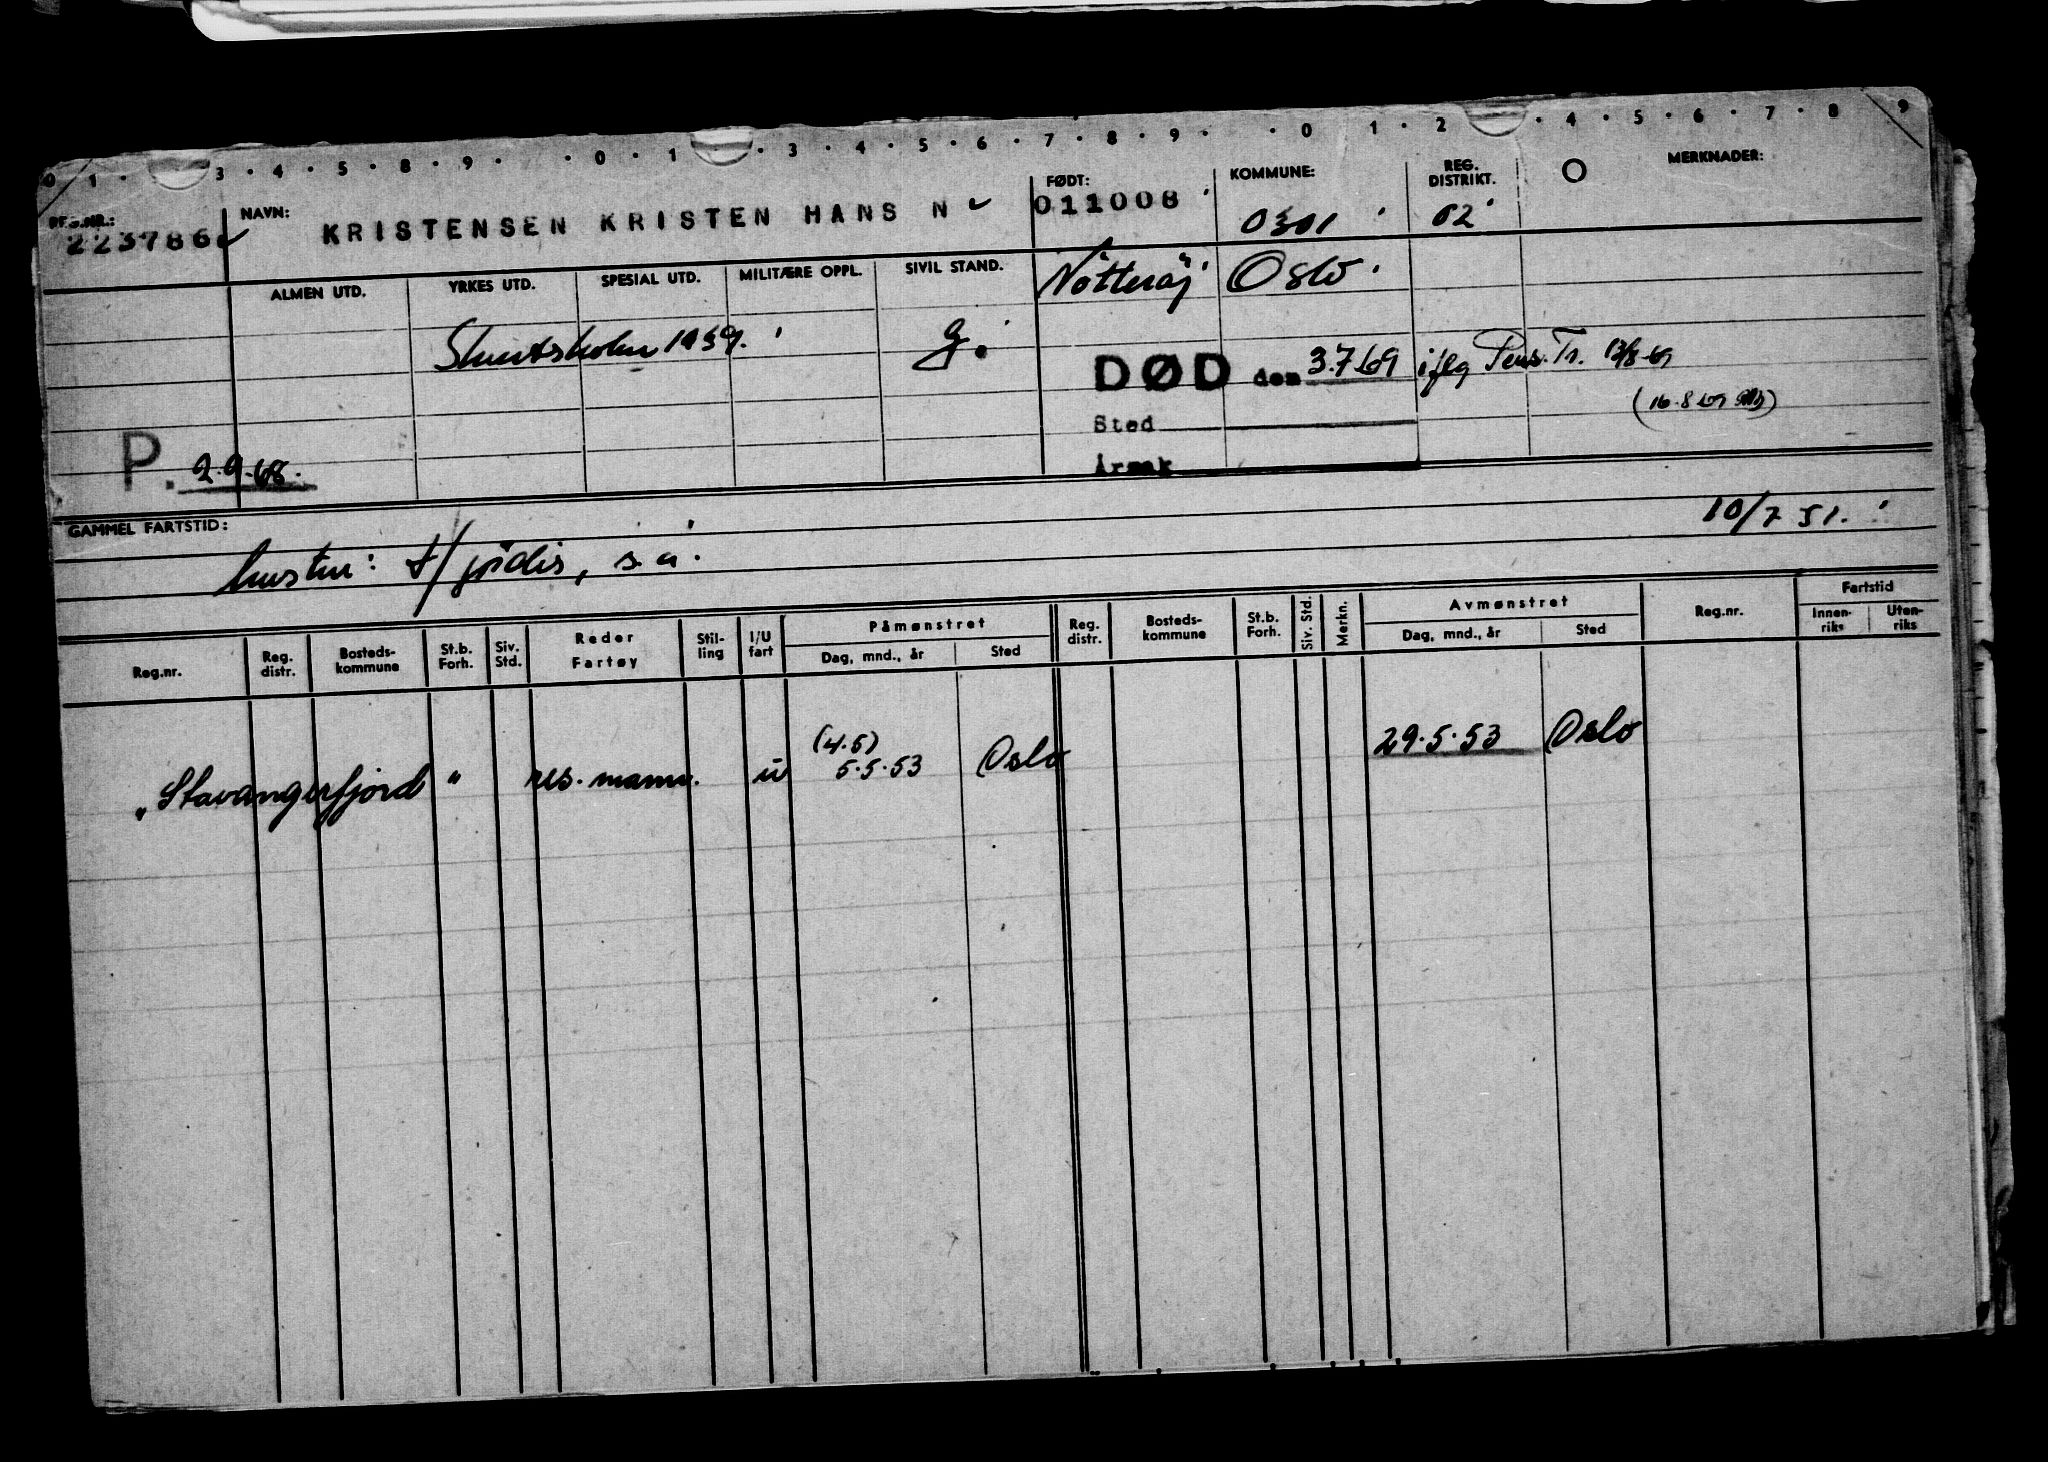 0 1 · 3 · 4 · 5 · 8 · 9 · · 0 · 1 · 3 · 4 · 5 · 6 · 7 · 8 · 9 · · 0 1 · 2 · 4 · 5 · 6 · 7 · 8 9
REG.NR.: NAVN: FØDT: KOMMUNE: REG. DISTRIKT. O MERKNADER:
223786 KRISTENSEN KRISTEN HANS N 011008 0301 02
ALMEN UTD. YRKES UTD. SPESIAL UTD. MILITÆRE OPPL. SIVIL STAND. Nøtterøy Oslo.
1939. g. DØD den 3.7.69 iflg Pens. Tr. 13/8-69
Sted (16.8.69)
P. 2.9.68. Årsak
GAMMEL FARTSTID: 10/7 51.
hustru: Hjördis, s.a.
Reg.nr. Reg. distr. Bosteds-kommune St.b. Forh. Siv. Std. Reder Fartøy Stil-ling I/U fart Påmønstret Dag, mnd., år Sted Reg. distr. Bosteds-kommune St.b. Forh. Siv. Std. Merkn. Avmønstret Dag, mnd., år Sted Reg.nr. Fartstid Innen-riks Uten-riks
(4.5)
"Stavangerfjord" res. mann. u 5.5.53 Oslo 29.5.53 Oslo